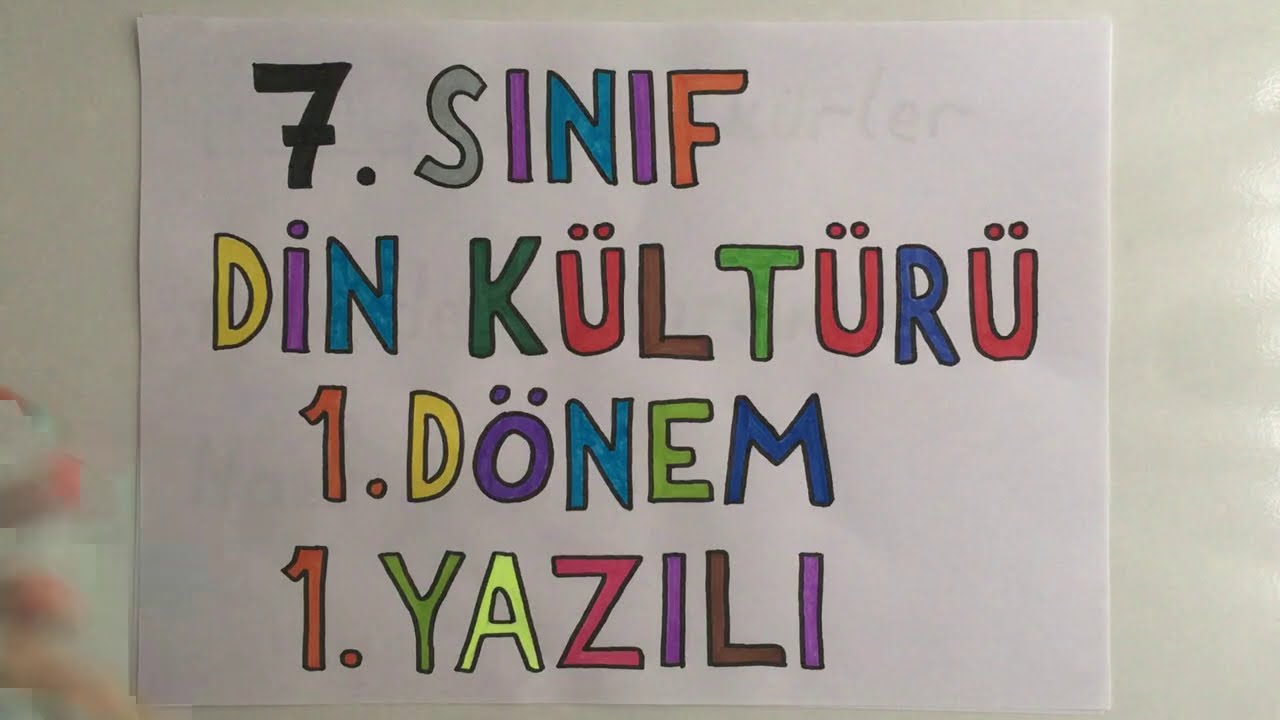 7. SINIF
DİN KÜLTÜRÜ
1. DÖNEM
1. YAZILI